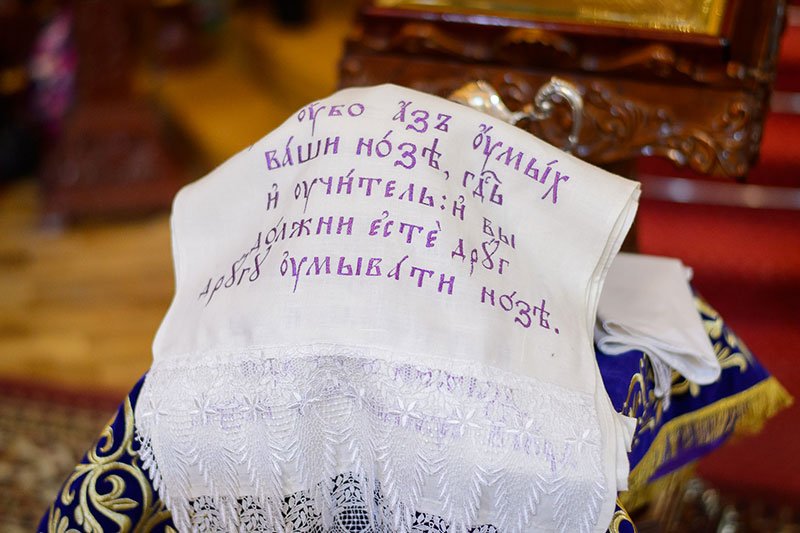 ᲂу҆́бо а҆́зъ ᲂу҆мы́хъ
ва́ши но́зѣ, гдⷭ҇ь
и҆ ᲂу҆чи́тель: и҆ вы
до́лжни є҆стѐ дрꙋ́гъ
дрꙋ́гꙋ ᲂу҆мыва́ти но́зѣ.